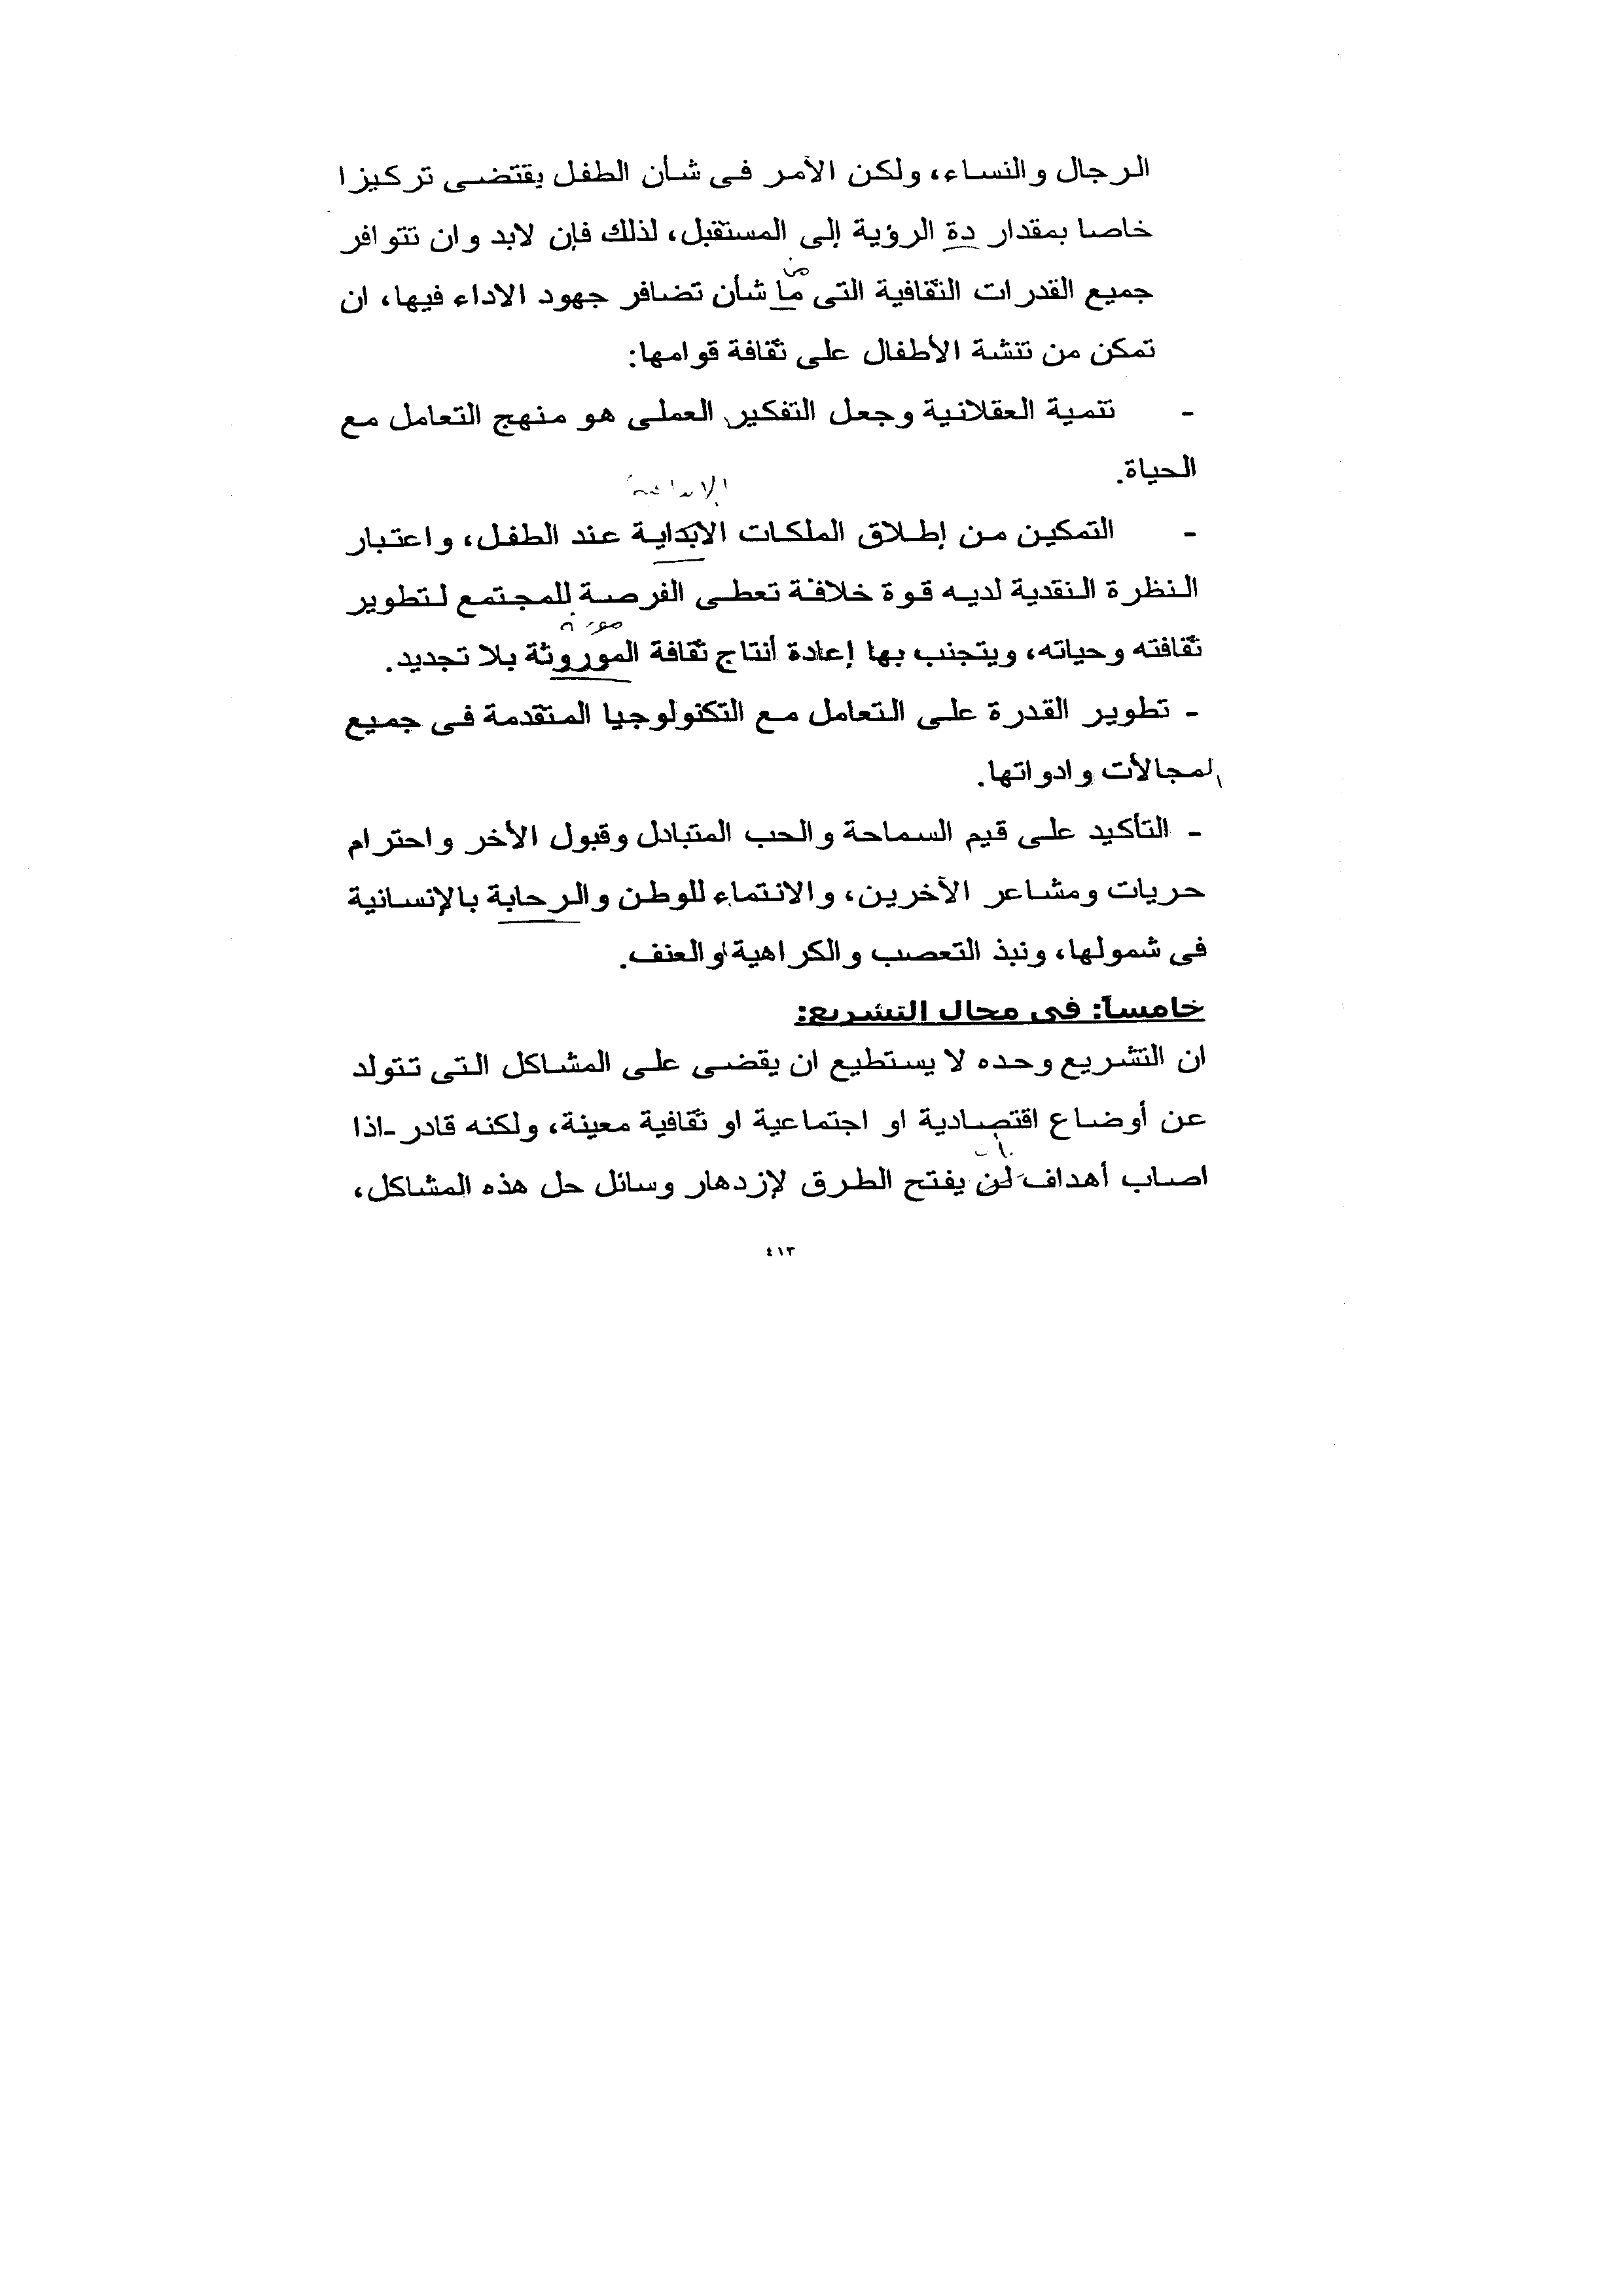 الرجال والنساء، ولكن الأمر فى شأن الطفل يقتضى تركيزا
خاصا بمقدار دة الرؤية إلى المستقبل، لذلك فإن لابد وان تتوافر
من
جميع القدرات الثقافية التى ما شأن تضافر جهود الاداء فيها، ان
تمكن من تنشة الأطفال على ثقافة قوامها:
- تنمية العقلانية وجعل التفكير العملى هو منهج التعامل مع
الحياة.
الإبداعية
- التمكين من إطلاق الملكات الابداية عند الطفل، واعتبار
النظرة النقدية لديه قوة خلافة تعطى الفرصة للمجتمع لتطوير
ثقافته وحياته، ويتجنب بها إعادة أنتاج ثقافة الموروثة بلا تجديد.
- تطوير القدرة على التعامل مع التكنولوجيا المتقدمة فى جميع
المجالأت وادواتها.
- التأكيد على قيم السماحة والحب المتبادل وقبول الأخر واحترام
حريات ومشاعر الآخرين، والانتماء للوطن والرحابة بالإنسانية
فى شمولها، ونبذ التعصب والكراهية والعنف.
خامساً: فى مجال التشريع:
ان التشريع وحده لا يستطيع ان يقضى على المشاكل التى تتولد
عن أوضاع اقتصادية او اجتماعية او ثقافية معينة، ولكنه قادر -اذا
اصاب أهداف لن يفتح الطرق لإزدهار وسائل حل هذه المشاكل،
٤١٣